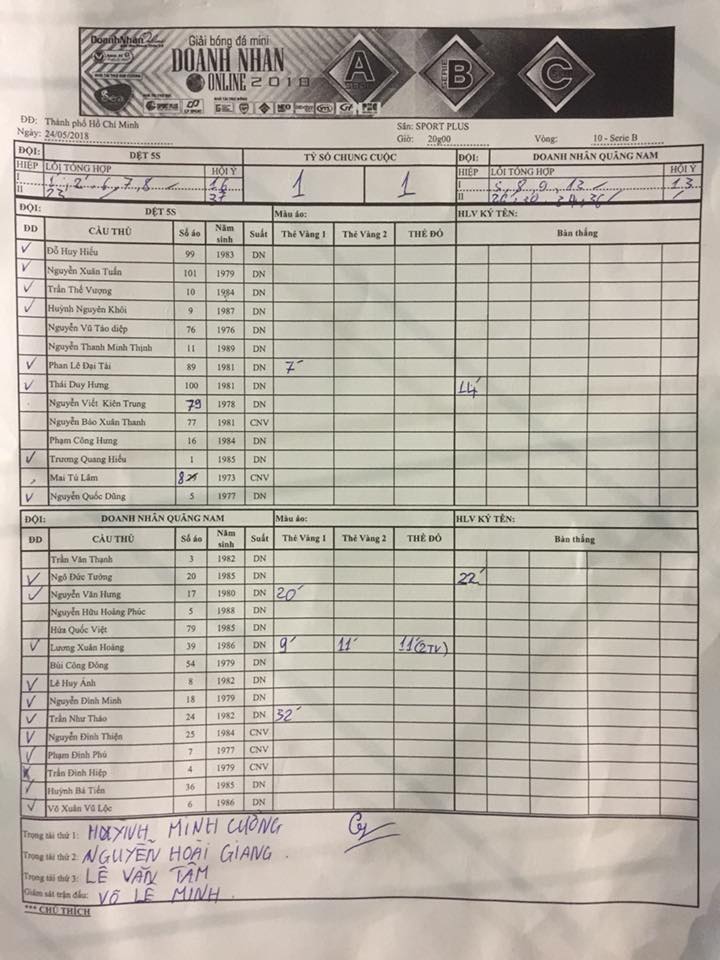 DoanhNhân Online
Giải bóng đá mini
DOANH NHÂN
ONLINE 2018
A
SERIE
SERIE
B
C
SPORT PLUS
ĐĐ: Thành phố Hồ Chí Minh
Sân: SPORT PLUS
Ngày: 24/05/2018 Giờ: 20g00 Vòng: 10 - Serie B
ĐỘI: DỆT 5S TỶ SỐ CHUNG CUỘC ĐỘI: DOANH NHÂN QUẢNG NAM
HIỆP LỖI TỔNG HỢP HỘI Ý 1 1 HIỆP LỖI TỔNG HỢP HỘI Ý
I 1', 2', 6, 7, 8 16 I 5, 8, 9, 13 13
II 23 37 II
ĐỘI: DỆT 5S Màu áo: HLV KÝ TÊN:
ĐD CẦU THỦ Số áo Năm sinh Suất Thẻ Vàng 1 Thẻ Vàng 2 THẺ ĐỎ Bàn thắng
✓ Đỗ Huy Hiếu 99 1983 DN
✓ Nguyễn Xuân Tuấn 101 1979 DN
✓ Trần Thế Vượng 10 1984 DN
✓ Huỳnh Nguyên Khôi 9 1987 DN
Nguyễn Vũ Táo diệp 76 1976 DN
Nguyễn Thanh Minh Thịnh 11 1989 DN
✓ Phan Lê Đại Tài 89 1981 DN 7'
✓ Thái Duy Hưng 100 1981 DN 14'
Nguyễn Viết Kiên Trung 79 1978 DN
Nguyễn Bảo Xuân Thanh 77 1981 CNV
Phạm Công Hưng 16 1984 DN
✓ Trương Quang Hiếu 1 1985 DN
Mai Tú Lâm 8 1973 CNV
✓ Nguyễn Quốc Dũng 5 1977 DN
ĐỘI: DOANH NHÂN QUẢNG NAM Màu áo: HLV KÝ TÊN:
ĐD CẦU THỦ Số áo Năm sinh Suất Thẻ Vàng 1 Thẻ Vàng 2 THẺ ĐỎ Bàn thắng
Trần Văn Thạnh 3 1982 DN
✓ Ngô Đức Tường 20 1985 DN 22'
✓ Nguyễn Văn Hưng 17 1980 DN 20'
Nguyễn Hữu Hoàng Phúc 5 1988 DN
Hứa Quốc Việt 79 1985 DN
✓ Lương Xuân Hoàng 39 1986 DN 9' 11' 11'(2TV)
Bùi Công Đông 54 1979 DN
✓ Lê Huy Ánh 8 1982 DN
✓ Nguyễn Đình Minh 18 1979 DN
✓ Trần Như Thảo 24 1982 DN 32'
✓ Nguyễn Đình Thiện 25 1984 CNV
✓ Phạm Đình Phú 7 1977 CNV
Trần Đình Hiệp 4 1979 CNV
✓ Huỳnh Bá Tiến 36 1985 DN
✓ Võ Xuân Vũ Lộc 6 1986 DN
Trọng tài thứ 1: HUỲNH MINH CƯỜNG
Trọng tài thứ 2: NGUYỄN HOÀI GIANG.
Trọng tài thứ 3: LÊ VĂN TÂM
Giám sát trận đấu: VÕ LÊ MINH.
*** CHÚ THÍCH